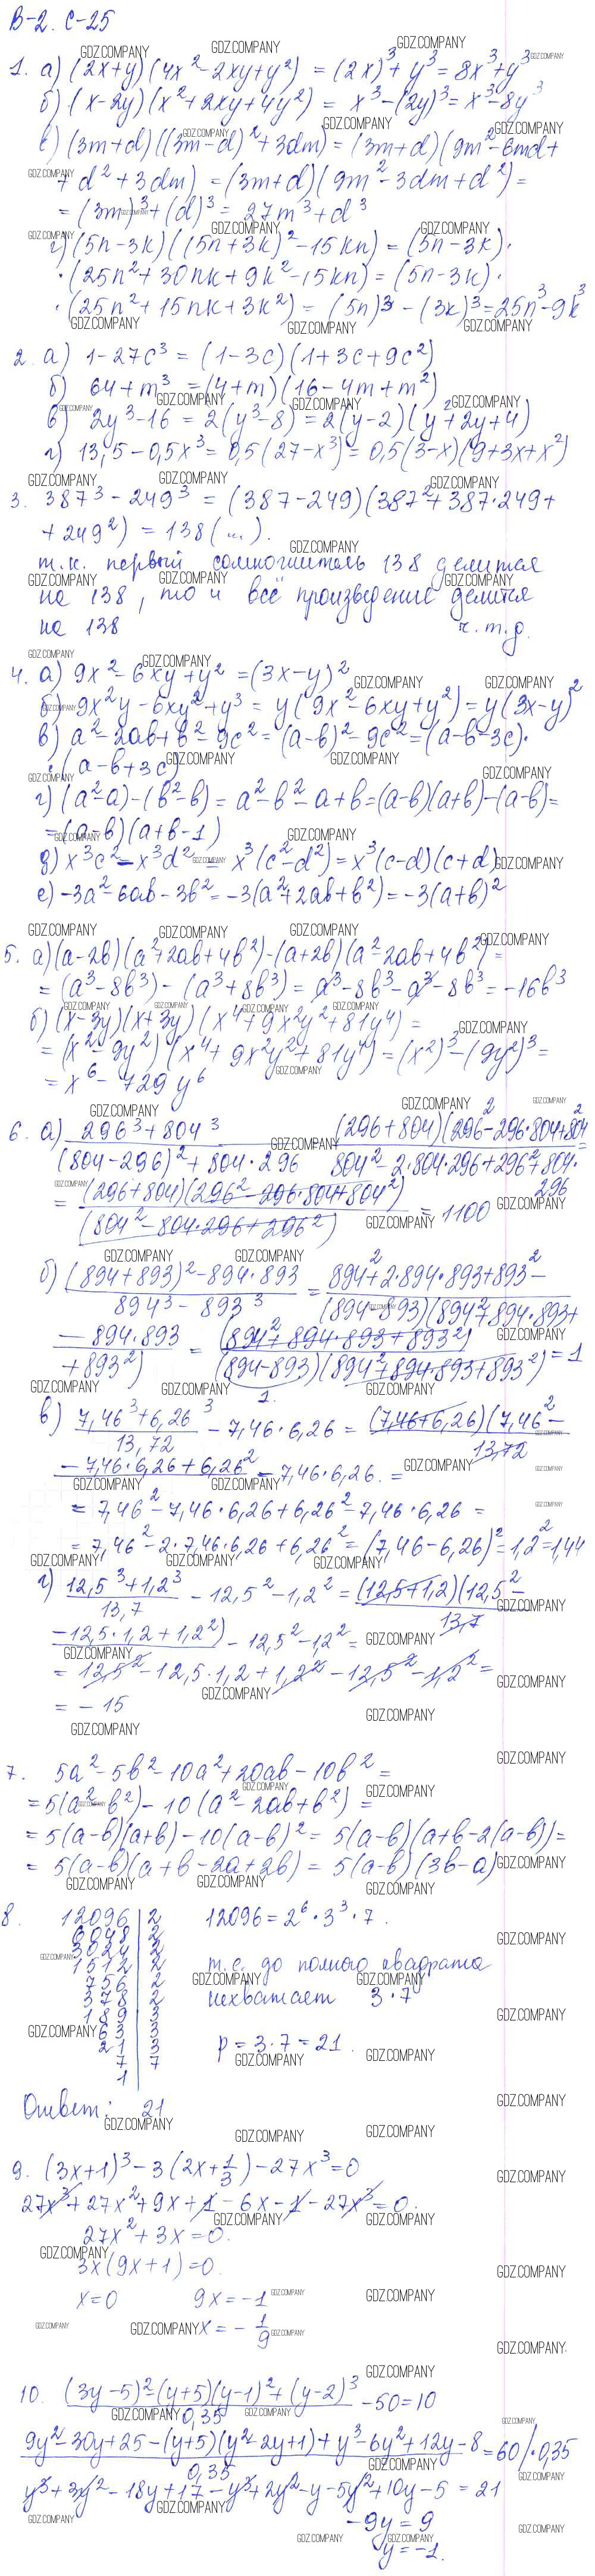 В-2. С-25
1. а) (2x+y)(4x²-2xy+y²) = (2x)³+y³ = 8x³+y³
б) (x-2y)(x²+2xy+4y²) = x³-(2y)³ = x³-8y³
в) (3m+d)((3m-d)²+3dm) = (3m+d)(9m²-6md+
+d²+3dm) = (3m+d)(9m²-3dm+d²) =
= (3m)³+(d)³ = 27m³+d³
г) (5n-3k)((5n+3k)²-15kn) = (5n-3k)·
·(25n²+30nk+9k²-15kn) = (5n-3k)·
·(25n²+15nk+3k²) = (5n)³-(3k)³ = 25n³-9k³
2. а) 1-27c³ = (1-3c)(1+3c+9c²)
б) 64+m³ = (4+m)(16-4m+m²)
в) 2y³-16 = 2(y³-8) = 2(y-2)(y²+2y+4)
г) 13,5-0,5x³ = 0,5(27-x³) = 0,5(3-x)(9+3x+x²)
3. 387³-249³ = (387-249)(387²+387·249+
+249²) = 138(...).
т.к. первый сомножитель 138 делится
на 138, то и всё произведение делится
на 138 ч.т.д.
4. а) 9x²-6xy+y² = (3x-y)²
б) 9x²y-6xy²+y³ = y(9x²-6xy+y²) = y(3x-y)²
в) a²-2ab+b²-9c² = (a-b)²-9c² = (a-b-3c)·
·(a-b+3c)
г) (a²-a)-(b²-b) = a²-b²-a+b = (a-b)(a+b)-(a-b) =
= (a-b)(a+b-1)
д) x³c²-x³d² = x³(c²-d²) = x³(c-d)(c+d)
е) -3a²-6ab-3b² = -3(a²+2ab+b²) = -3(a+b)²
5. а) (a-2b)(a²+2ab+4b²)-(a+2b)(a²-2ab+4b²) =
= (a³-8b³)-(a³+8b³) = a³-8b³-a³-8b³ = -16b³
б) (x-3y)(x+3y)(x⁴+9x²y²+81y⁴) =
= (x²-9y²)(x⁴+9x²y²+81y⁴) = (x²)³-(9y²)³ =
= x⁶-729y⁶
6. а) 296³+804³ (296+804)(296²-296·804+804²
(804-296)²+804·296 = 804²-2·804·296+296²+804·
296
= (296+804)(296²-296·804+804²)
(804²-804·296+296²) = 1100
б) (894+893)²-894·893 = 894²+2·894·893+893²-
894³-893³ (894-893)(894²+894·893+
-894·893 = (894²+894·893+893²)
+893²) (894-893)(894²+894·893+893²) = 1
1.
в) 7,46³+6,26³ - 7,46·6,26 = (7,46+6,26)(7,46²-
13,72 13,72
-7,46·6,26+6,26² - 7,46·6,26. =
= 7,46²-7,46·6,26+6,26²-7,46·6,26 =
= 7,46²-2·7,46·6,26+6,26² = (7,46-6,26)² = 1,2² = 1,44
г) 12,5³+1,2³ - 12,5²-1,2² = (12,5+1,2)(12,5²-
13,7 13,7
-12,5·1,2+1,2²) - 12,5²-1,2² =
= 12,5²-12,5·1,2+1,2²-12,5²-1,2² =
= -15
7. 5a²-5b²-10a²+20ab-10b² =
= 5(a²-b²)-10(a²-2ab+b²) =
= 5(a-b)(a+b)-10(a-b)² = 5(a-b)(a+b-2(a-b)) =
= 5(a-b)(a+b-2a+2b) = 5(a-b)(3b-a)
8. 12096 | 2 12096 = 2⁶·3³·7.
6048 | 2
3024 | 2
1512 | 2 т.е. до полного квадрата
756 | 2
378 | 2 нехватает 3·7
189 | 3
63 | 3
21 | 3 p = 3·7 = 21.
7 | 7
1
Ответ: 21
9. (3x+1)³-3(2x+1/3)-27x³=0
27x³+27x²+9x+1-6x-1-27x³=0.
27x²+3x=0.
3x(9x+1)=0.
x=0 9x=-1
x=-1/9
10. (3y-5)²-(y+5)(y-1)²+(y-2)³ -50=10
0,35
9y²-30y+25-(y+5)(y²-2y+1)+y³-6y²+12y-8 =60/·0,35
0,35
y³+3y²-18y+17-y³+2y²-y-5y²+10y-5 = 21
-9y=9
y=-1.
GDZ.COMPANY